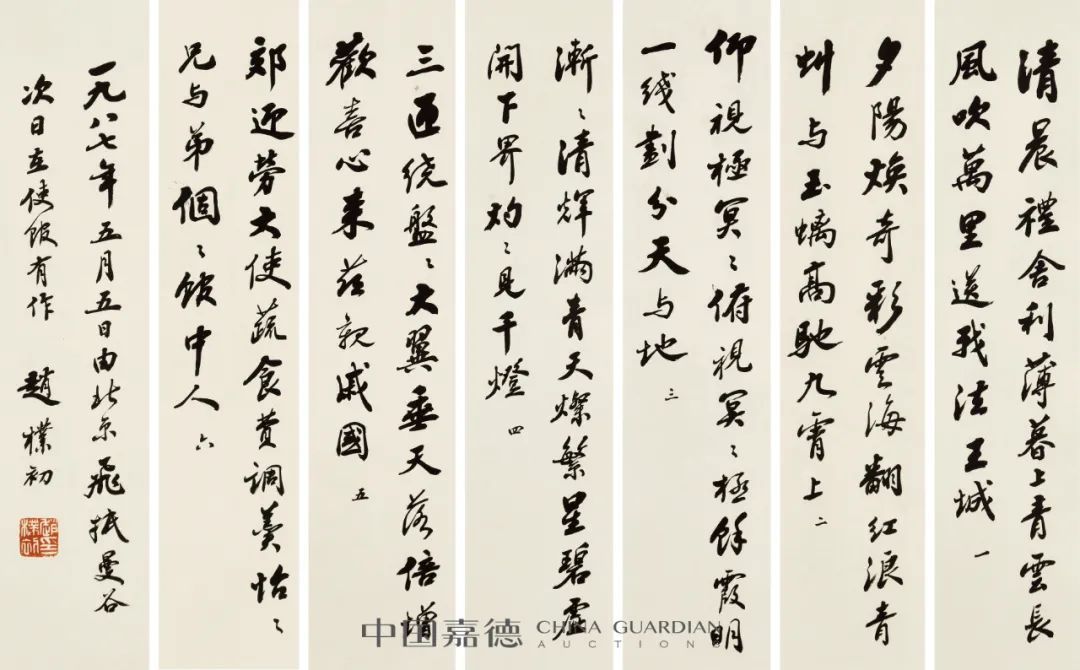 清晨禮舍利薄暮上青雲長
風吹萬里送我法王城 一
夕陽煥奇彩雲海翻紅浪青
虯与玉螭高馳九霄上 二
仰視極冥〻俯視冥〻極餘霞明
一线劃分天与地 三
漸〻清輝滿青天燦繁星碧虛
開下界灼〻見千燈 四
三匝绕盤〻大翼垂天落倍增
歡喜心来莅親戚國 五
郊迎勞大使蔬食費調羹怡〻
兄与弟個〻飯中人 六
一九八七年五月五日由北京飛抵曼谷
次日在使館有作 趙樸初
趙樸初
中国嘉德 CHINA GUARDIAN
AUCTIONS